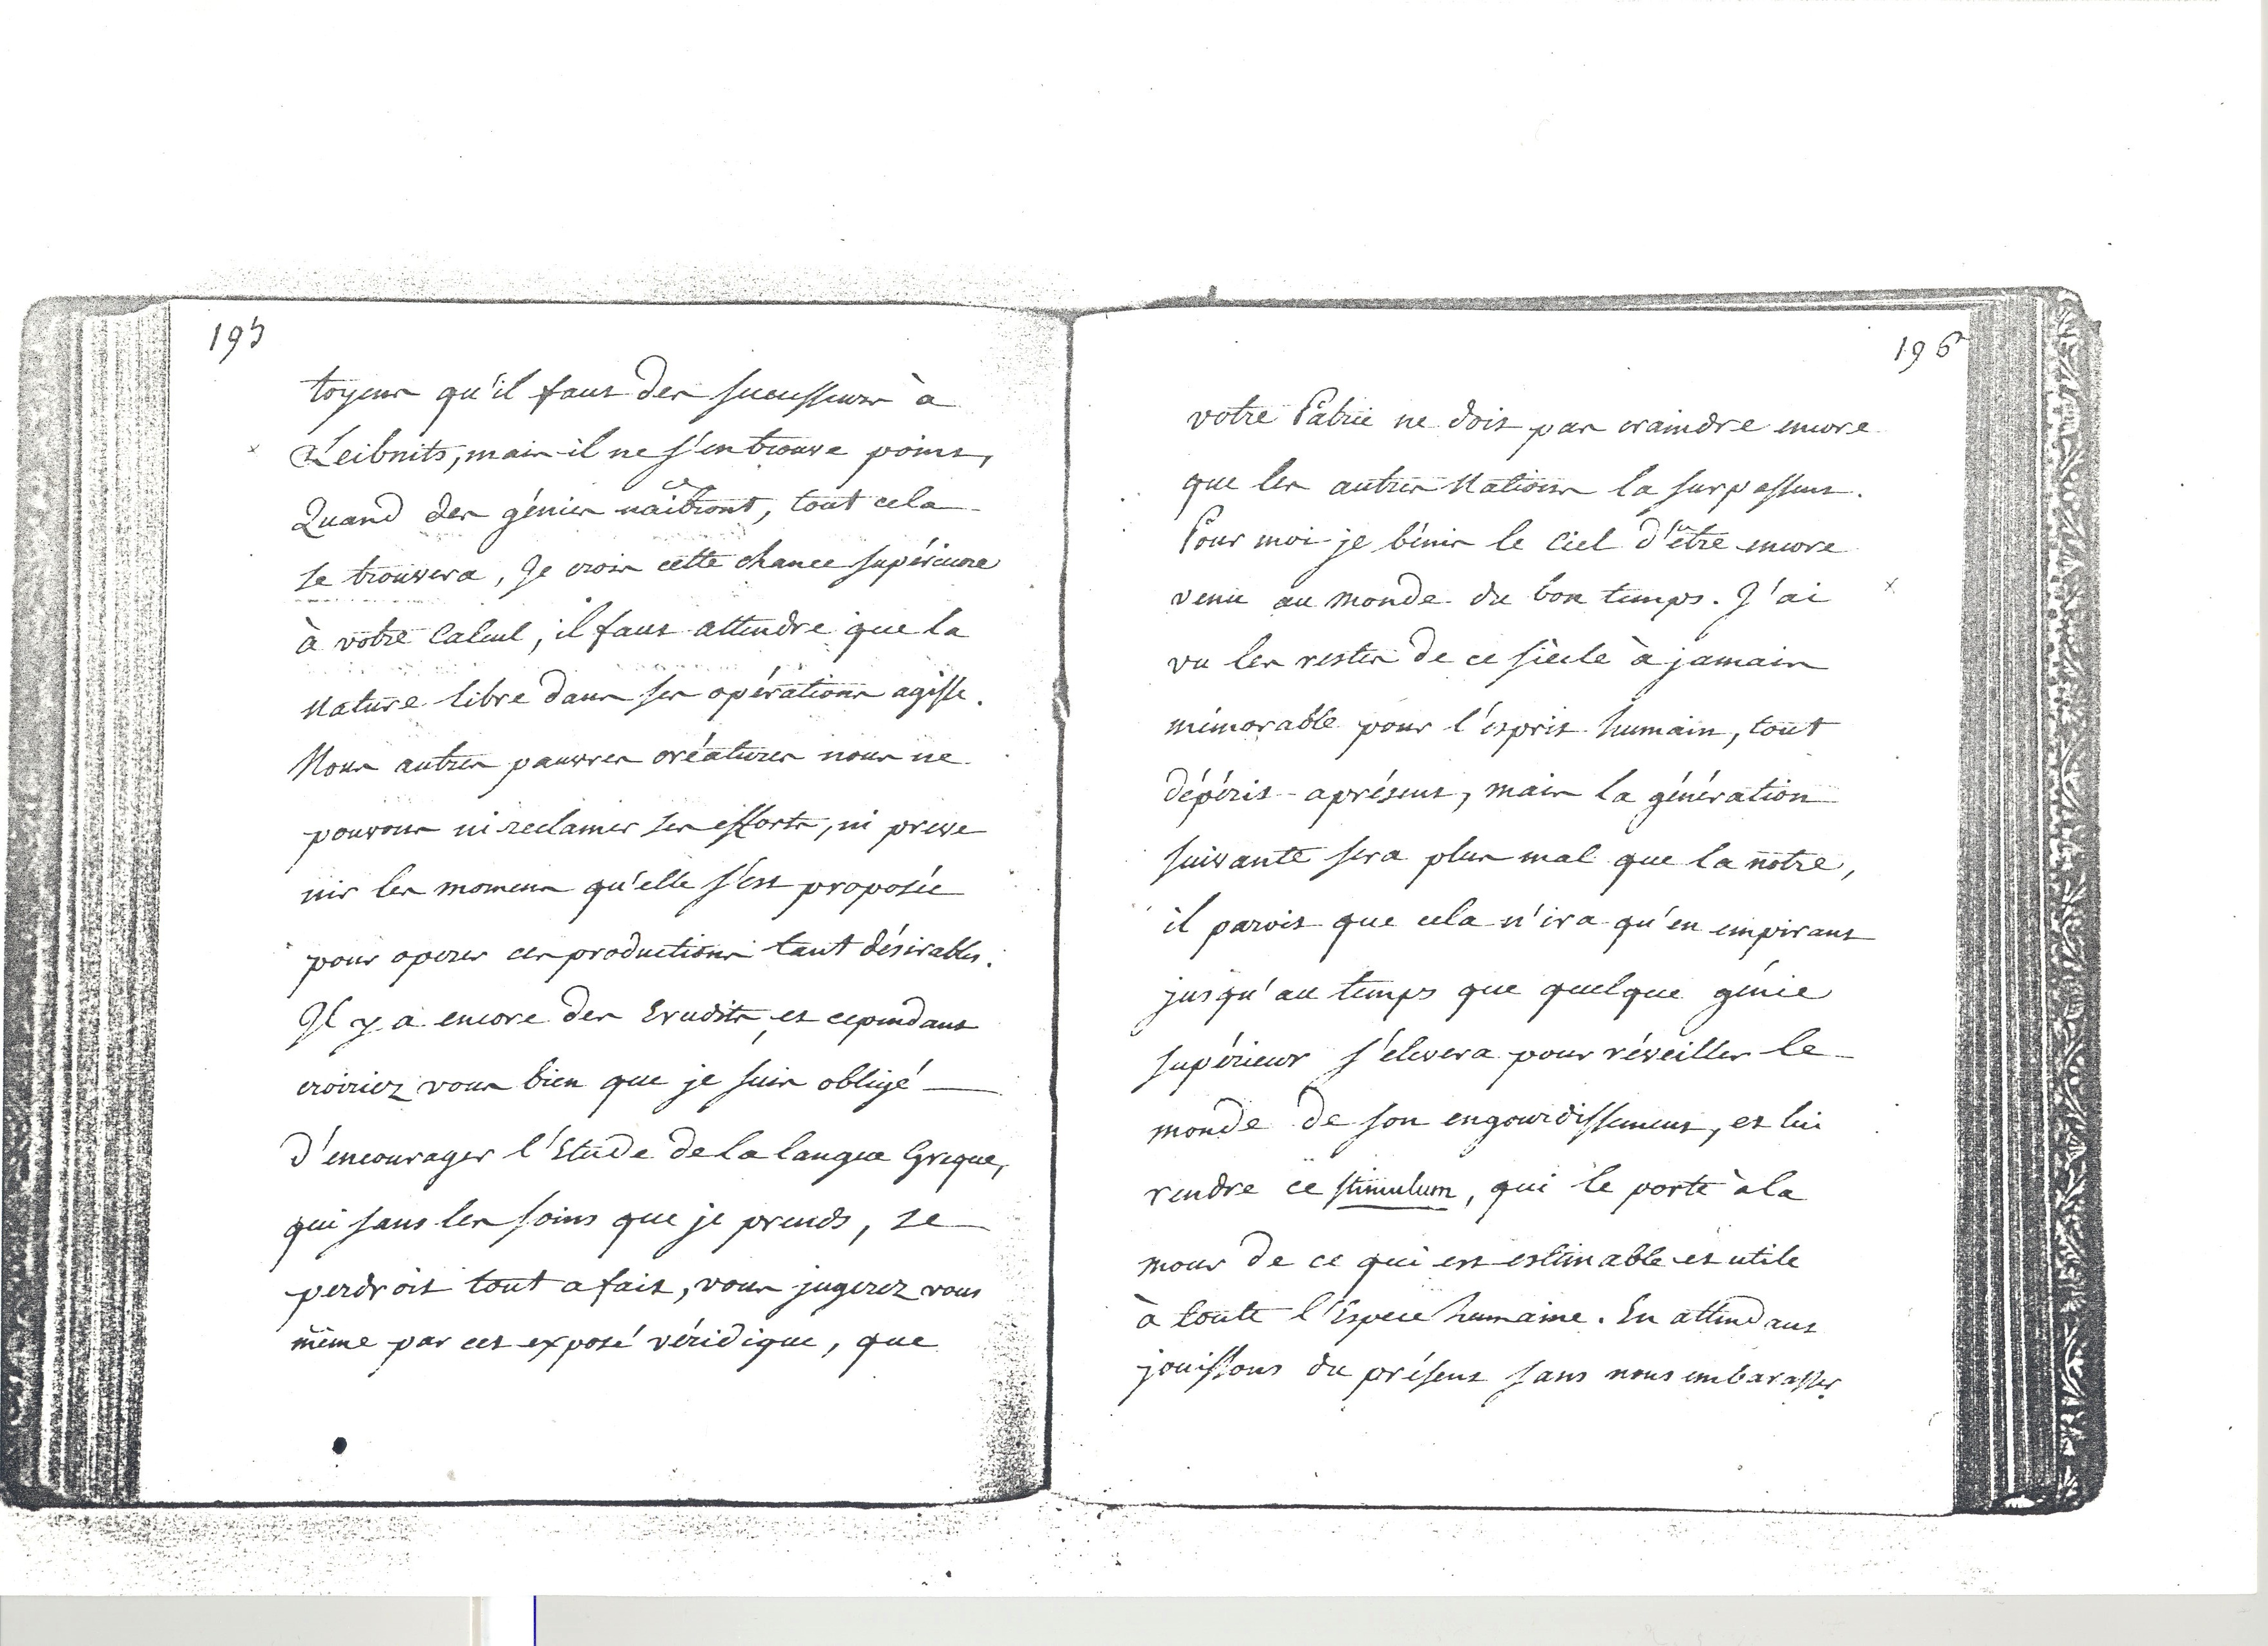 195
toyens qu'il faut des sucesseurs à
Leibnits, mais il ne s'en trouve point,
Quand des génies naitront, tout cela
se trouvera, Je crois cette chance supérieure
à votre Calcul, il faut attendre que la
Nature libre dans ses opérations agisse.
Nous autres pauvres créatures nous ne
pouvons ni reclamer ses efforts, ni preve
nir les momens qu'elle s'est proposée
pour operer ces productions tant désirables.
Il y a encore des Erudits, et cependant
croiriez vous bien que je suis obligé
d'encourager l'Etude de la langue Greque,
qui sans les soins que je prends, se
perdroit tout a fait, vous jugerez vous
même par cet exposé véridique, que
196
votre Patrie ne doit pas craindre encore
que les autres Nations la surpassent.
Pour moi je bénis le Ciel d'être encore
venu au monde du bon temps. J'ai
vu les restes de ce siècle à jamais
mémorable pour l'esprit humain, tout
dépérit aprésent, mais la génération
suivante sera plus mal que la notre,
il paroit que cela n'ira qu'en empirant
jusqu'au temps que quelque génie
supérieur s'elevera pour réveiller le
monde de son engourdissement, et lui
rendre ce stimulum, qui le porte à la
mour de ce qui est estimable et utile
à toute l'Espece humaine. En attendant
jouissons du présent sans nous embarasser